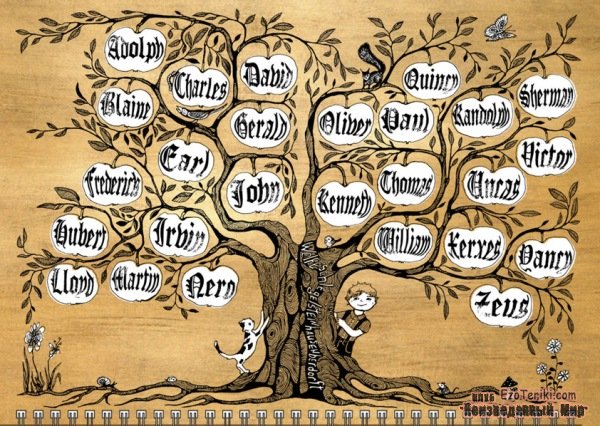 Adolph
Charles
David
Quincy
Blaine
Gerald
Oliver
Paul
Randolph
Sherman
Earl
Victor
Frederick
John
Kenneth
Thomas
Uncas
Hubert
Irvin
William
Xerxes
Yancy
Lloyd
Martin
Nero
Zeus
клуб EzoTeriki.com
"Неизведанный Мир"